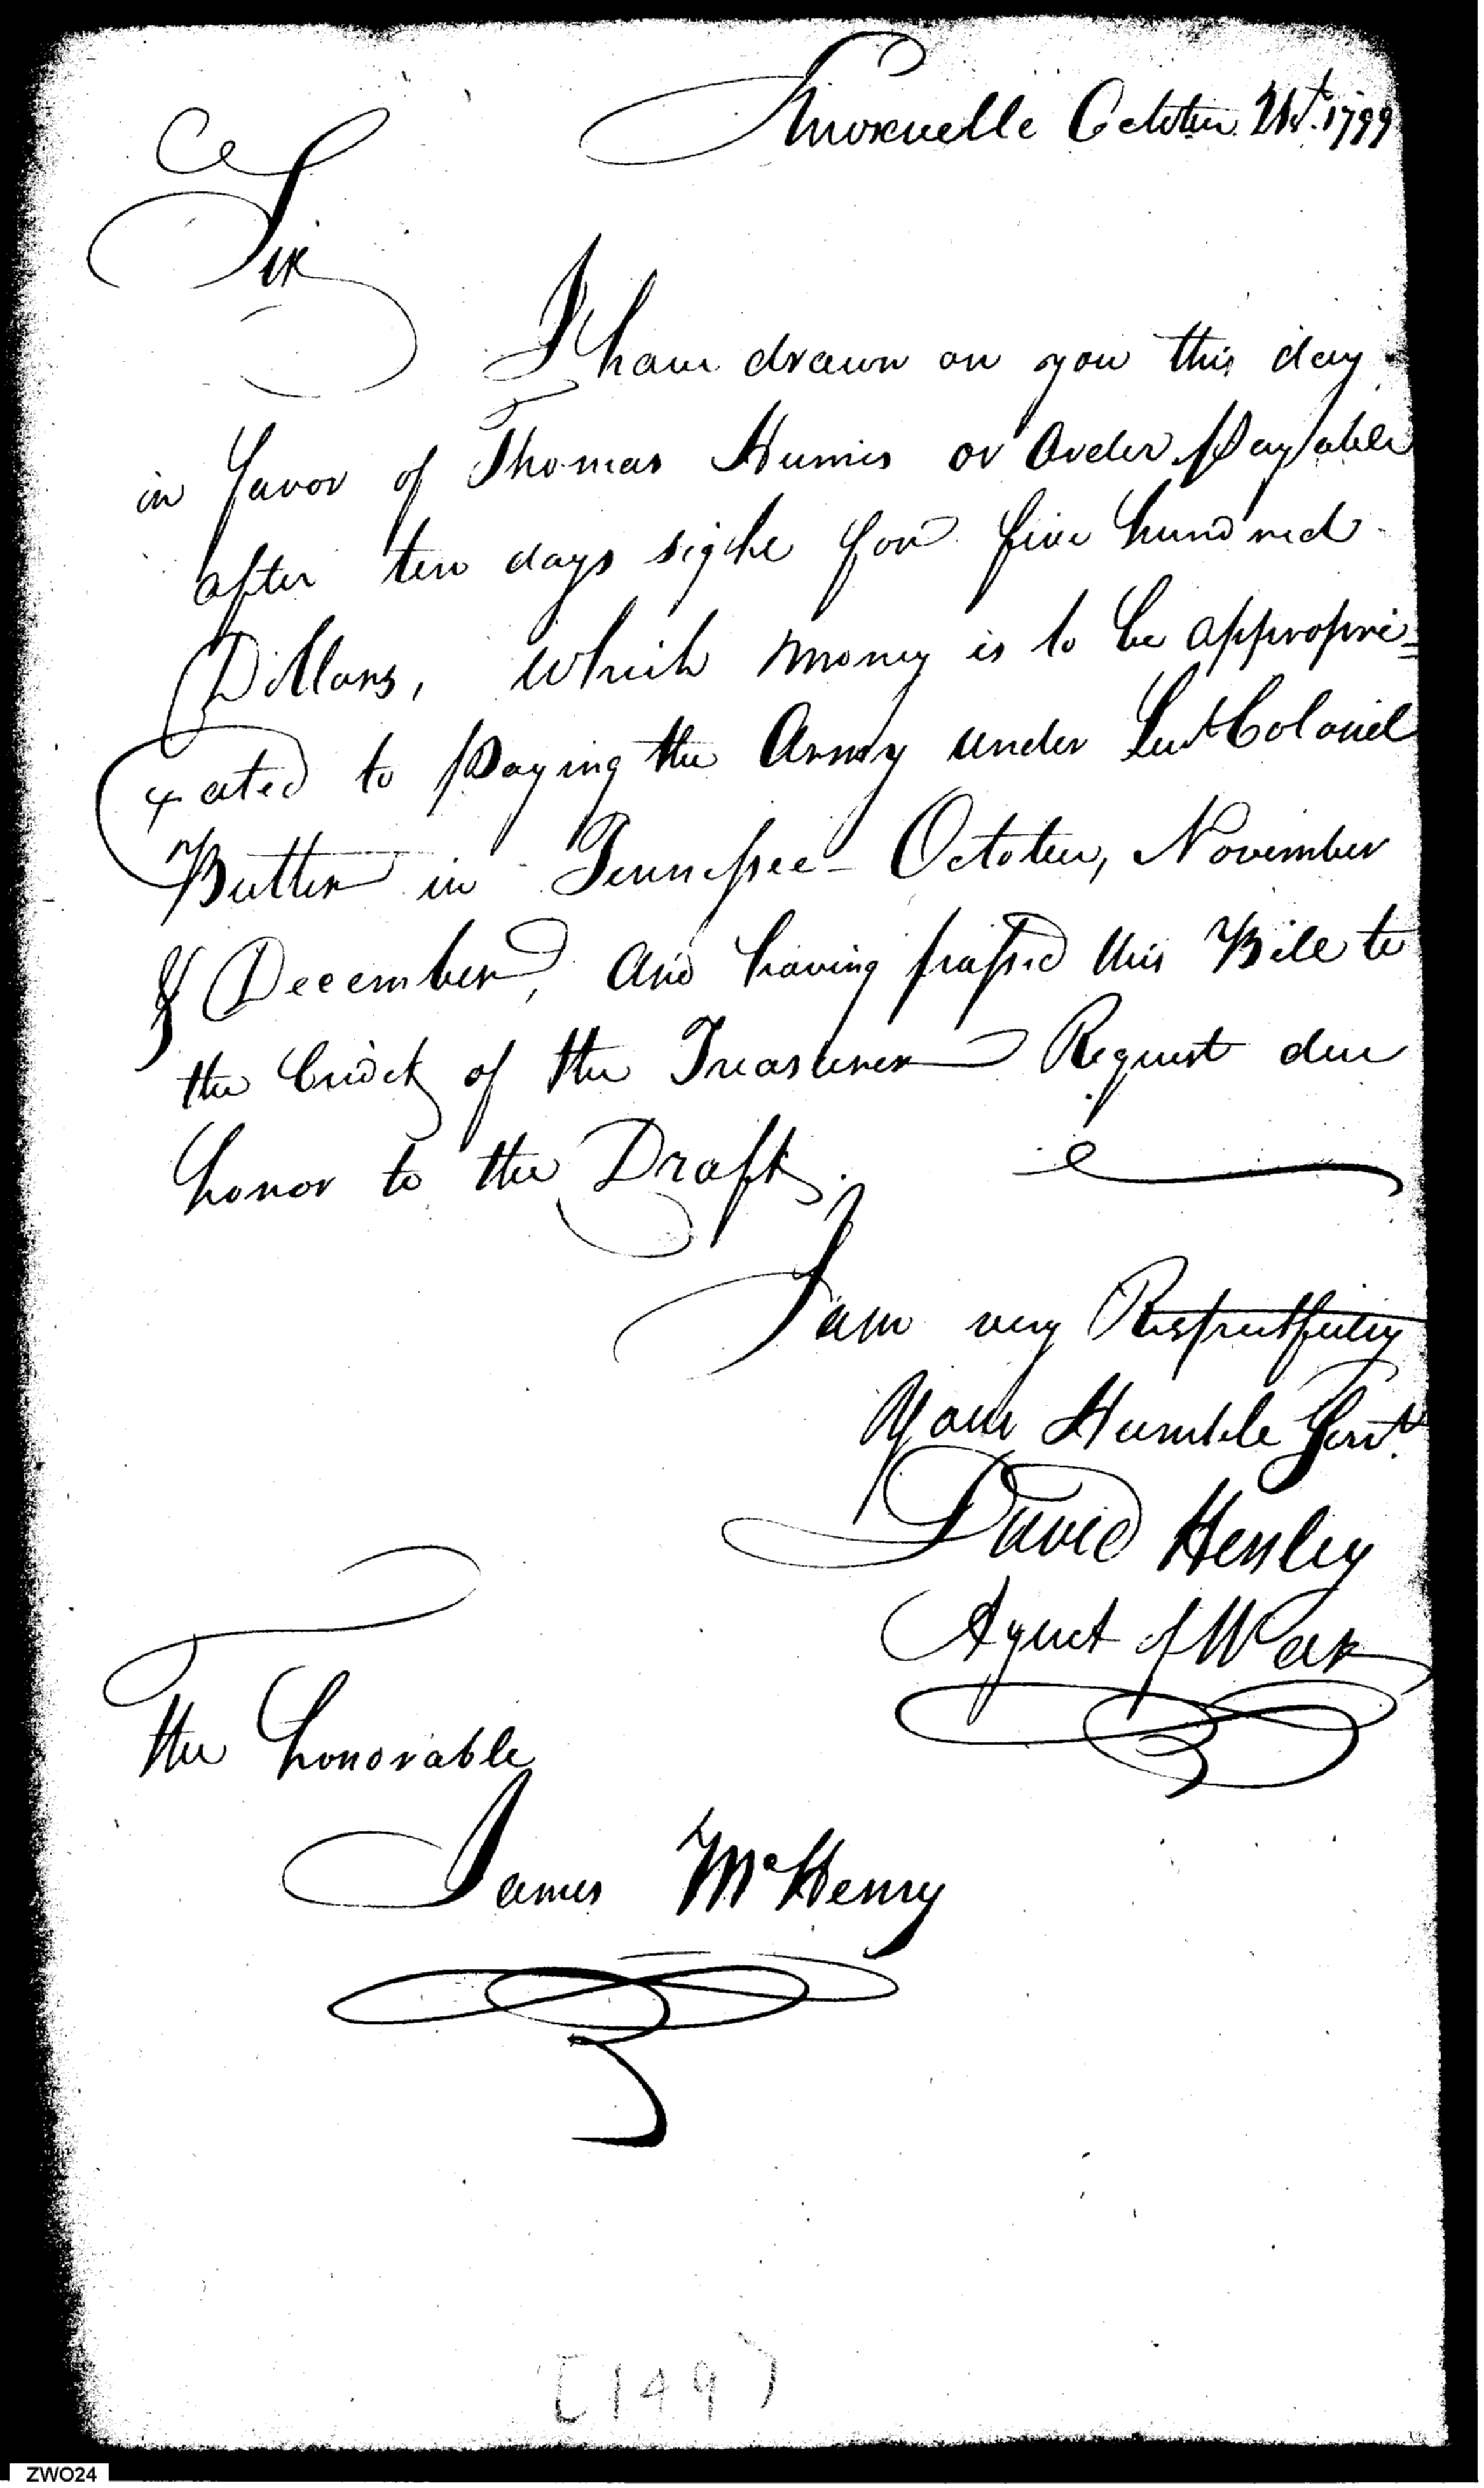 Knoxville October 21st. 1799
Sir
I have drawn on you this day
in favor of Thomas Humes or Order Payable
after ten days sight for five hundred
Dollars, which money is to be appropri=
ated to Paying the Army under Lut Colonel
Butler in Tennessee - October, November
& December, and having passed this Bill to
the Credit of the Treasurer Request due
honor to the Draft.
I am very Respectfully
Your Humble Servt.
David Henley
Agent of War
the honorable
James McHenry
[149]
ZWO24